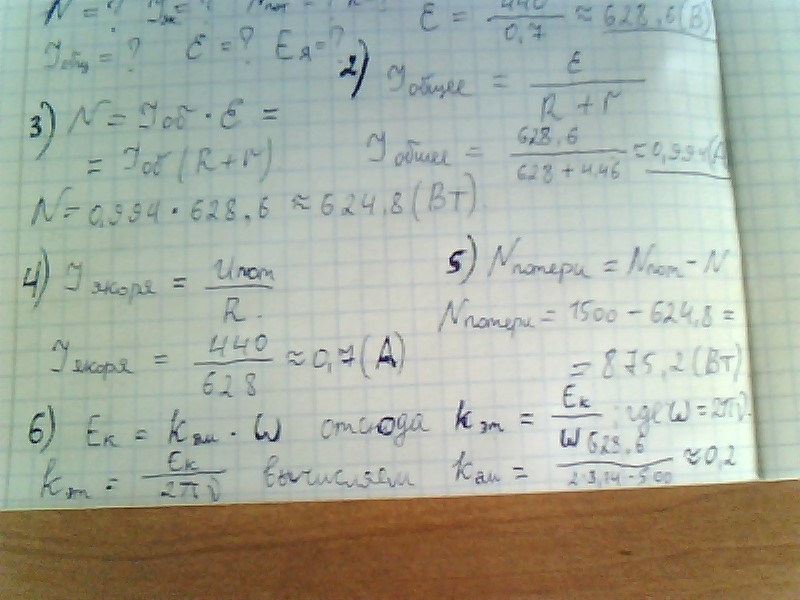 N = ? Iя = ? Nпот = ?
Iобщ = ? ε = ? Eя = ?
ε = 440 / 0,7 ≈ 628,6 (В)
2) Iобщее = ε / (R + r)
Iобщее = 628,6 / (628 + 4.46) ≈ 0,994 (А
3) N = Iоб · ε =
= Iоб (R + r)
N = 0,994 · 628,6 ≈ 624,8 (Вт)
4) Iякоря = Uпот / R.
Iякоря = 440 / 628 ≈ 0,7 (А)
5) Nпотери = Nпот - N
Nпотери = 1500 - 624,8 =
= 875,2 (Вт)
6) Eк = kэм · ω отсюда kэм = Eк / ω ; где ω = 2πν.
kэм = Eк / 2πν вычисляем kэм = 628,6 / 2·3,14·500 ≈ 0,2